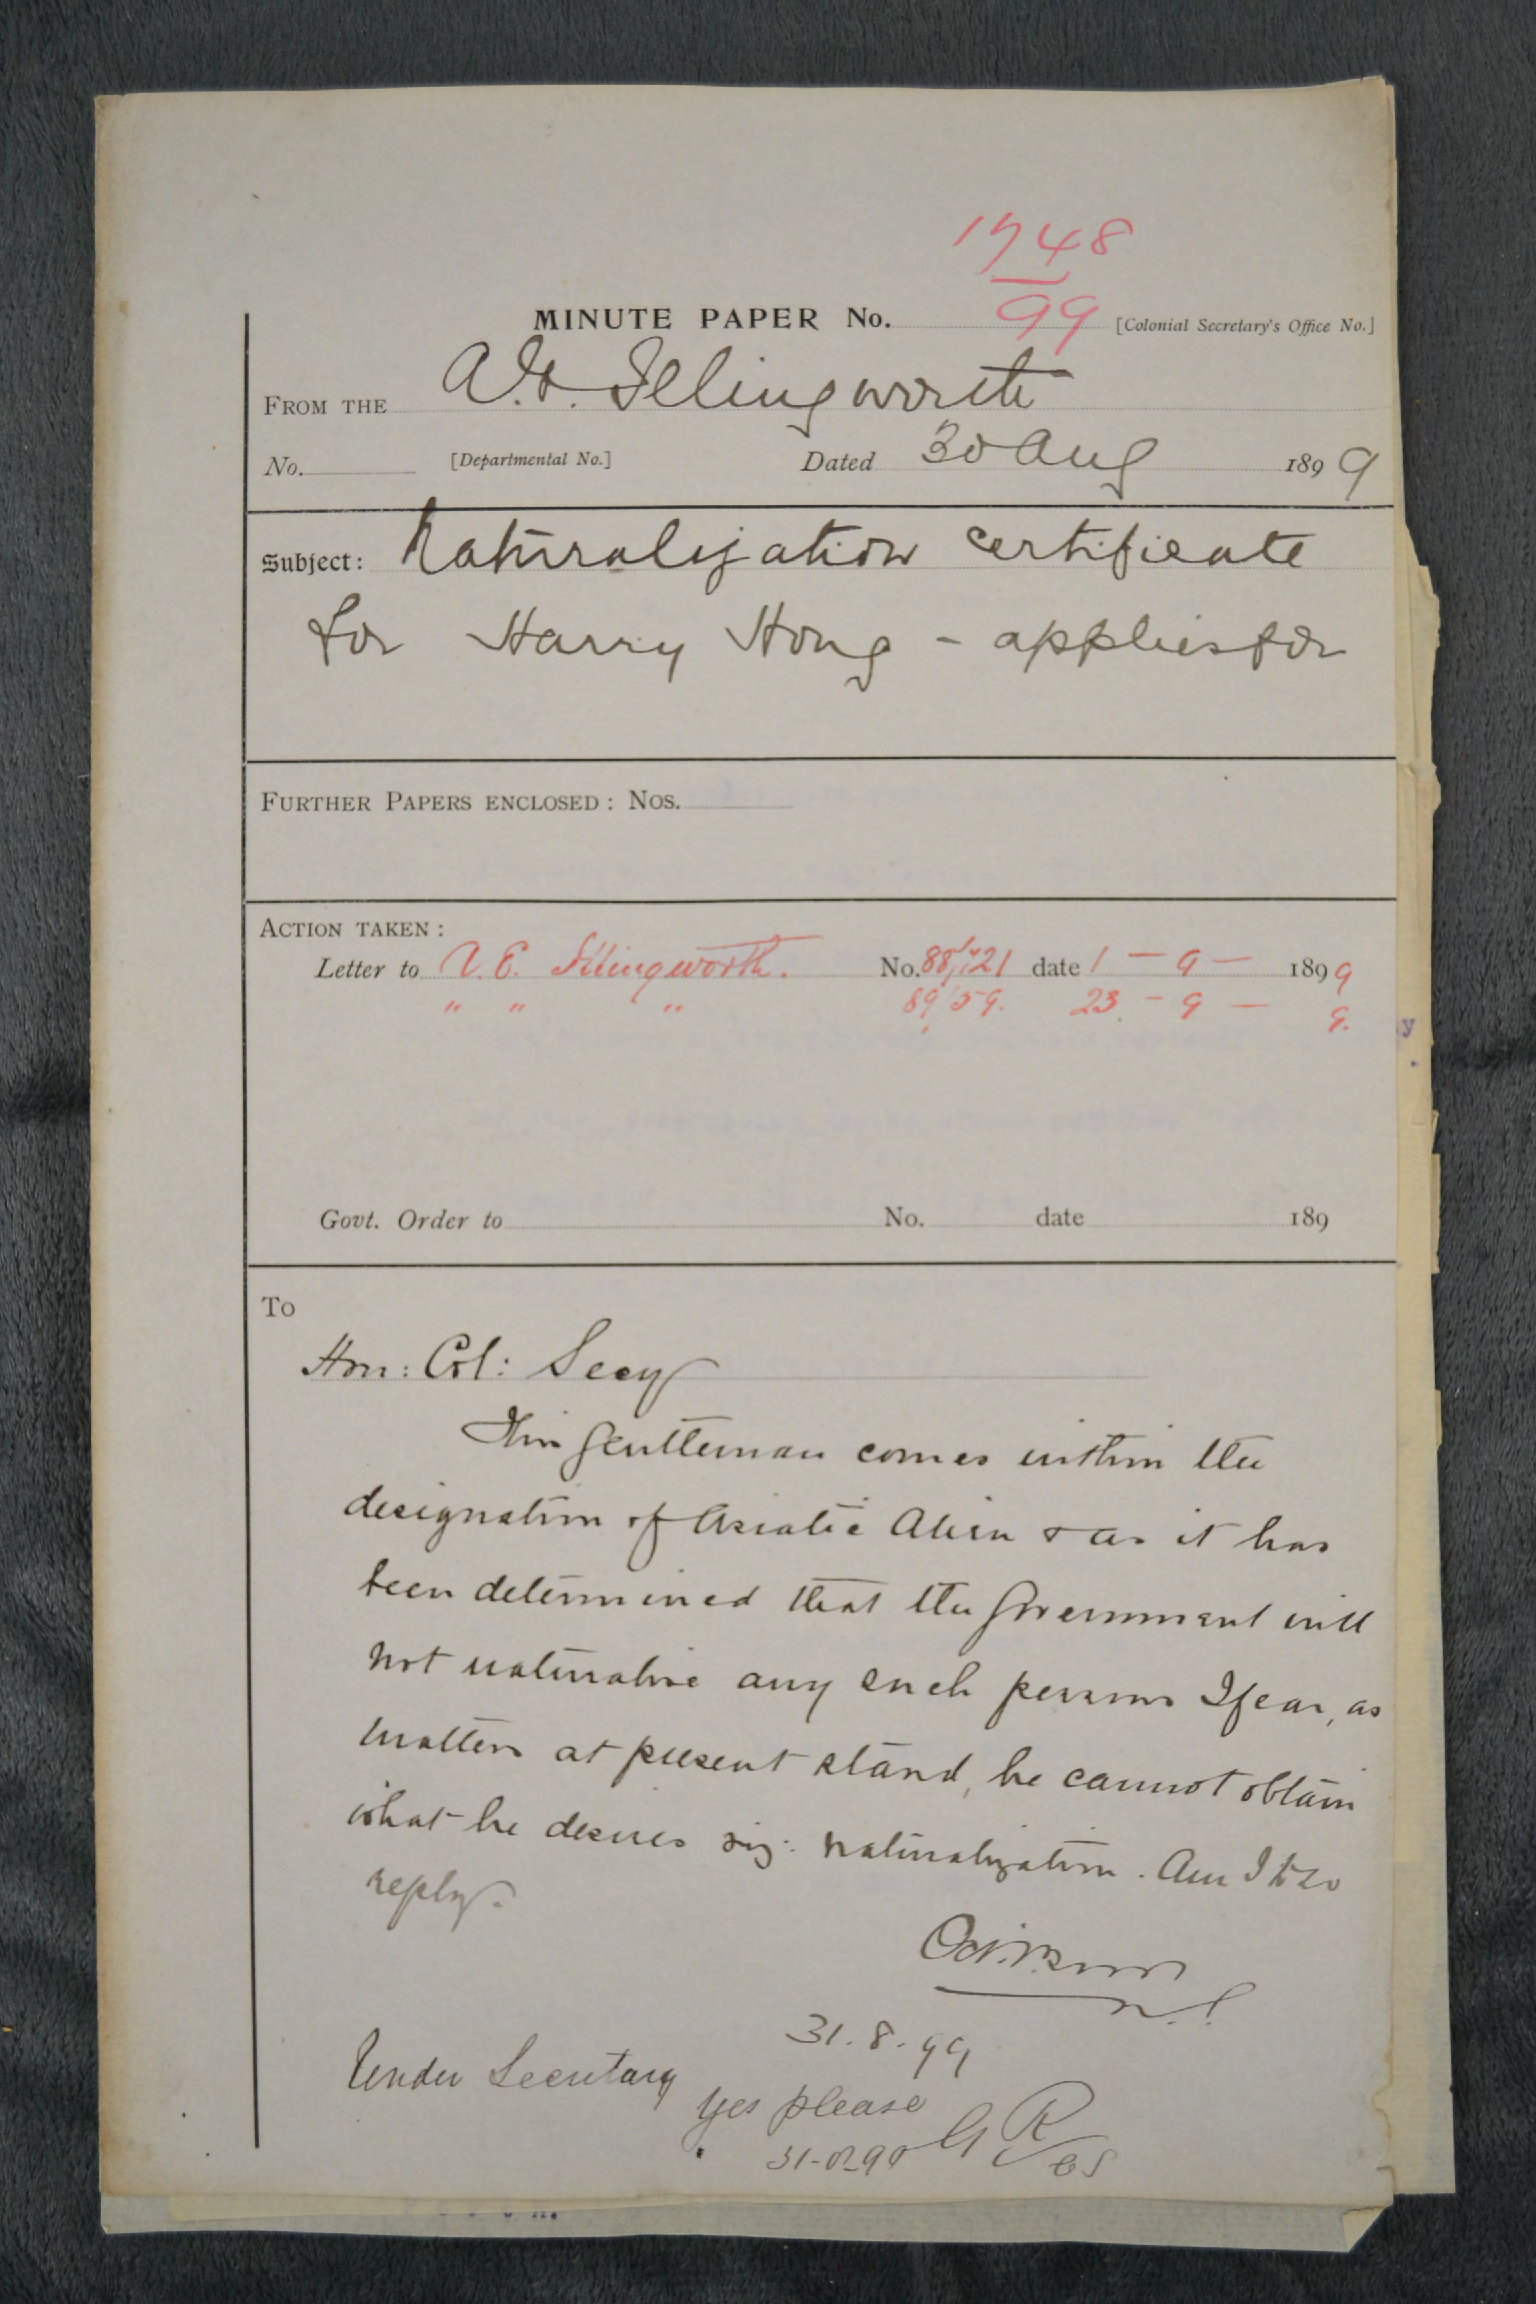 1748
99
MINUTE PAPER No. [Colonial Secretary's Office No.]
FROM THE Illingworth
No. [Departmental No.] Dated 30 Aug 1899
Subject: Naturalization certificate
for Harry Hong - applies for
FURTHER PAPERS ENCLOSED: Nos.
ACTION TAKEN:
Letter to V. E. Illingworth. No. date 1 - 9 - 1899
" " " 89/59. 23 - 9 - 9.
Govt. Order to No. date 189
To
Hon: Col: Secy
This gentleman comes within the
designation of Asiatic Alien & as it has
been determined that the Government will
not naturalise any such persons I fear, as
matters at present stand, he cannot obtain
what he desires viz: naturalization. Am I to so
reply.
31.8.99
Under Secretary
Yes please
GR
CS